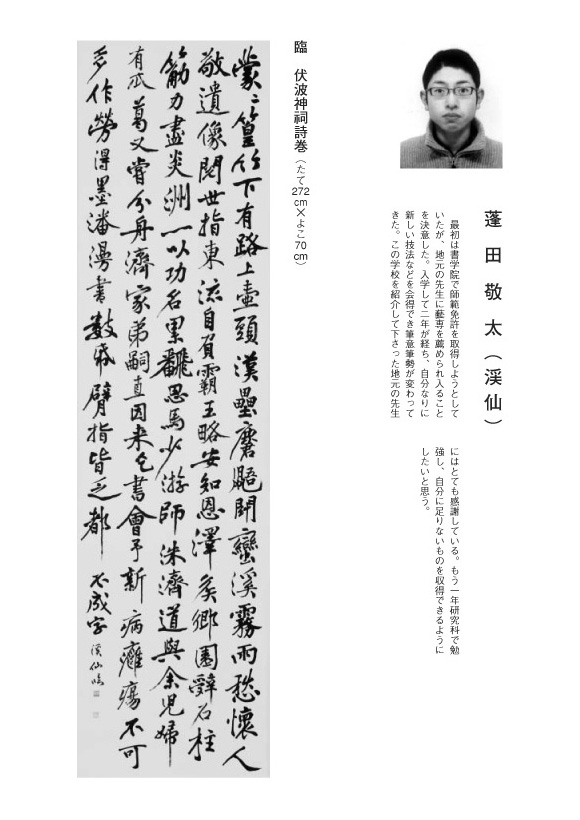 蓬田敬太（渓仙）
最初は書学院で師範免許を取得しようとして
いたが、地元の先生に藝専を薦められ入ること
を決意した。入学して二年が経ち、自分なりに
新しい技法などを会得でき筆意筆勢が変わって
きた。この学校を紹介して下さった地元の先生
にはとても感謝している。もう一年研究科で勉
強し、自分に足りないものを収得できるように
したいと思う。
臨　伏波神祠詩巻（たて272cm×よこ70cm）
蒙〻篁竹下有路上壷頭漢壘麏鼯鬪蠻溪霧雨愁懷人
敬遺像閱世指東流自負霸王略安知恩澤矦鄉園辭石柱
筋力盡炎洲一以功名累翻思馬少游師洙濟道與余兒婦
有瓜葛又嘗分舟濟家弟嗣直因来乞書會予新病癰瘍不可
多作勞得墨瀋漫書數紙臂指皆乏都不成字渓仙臨